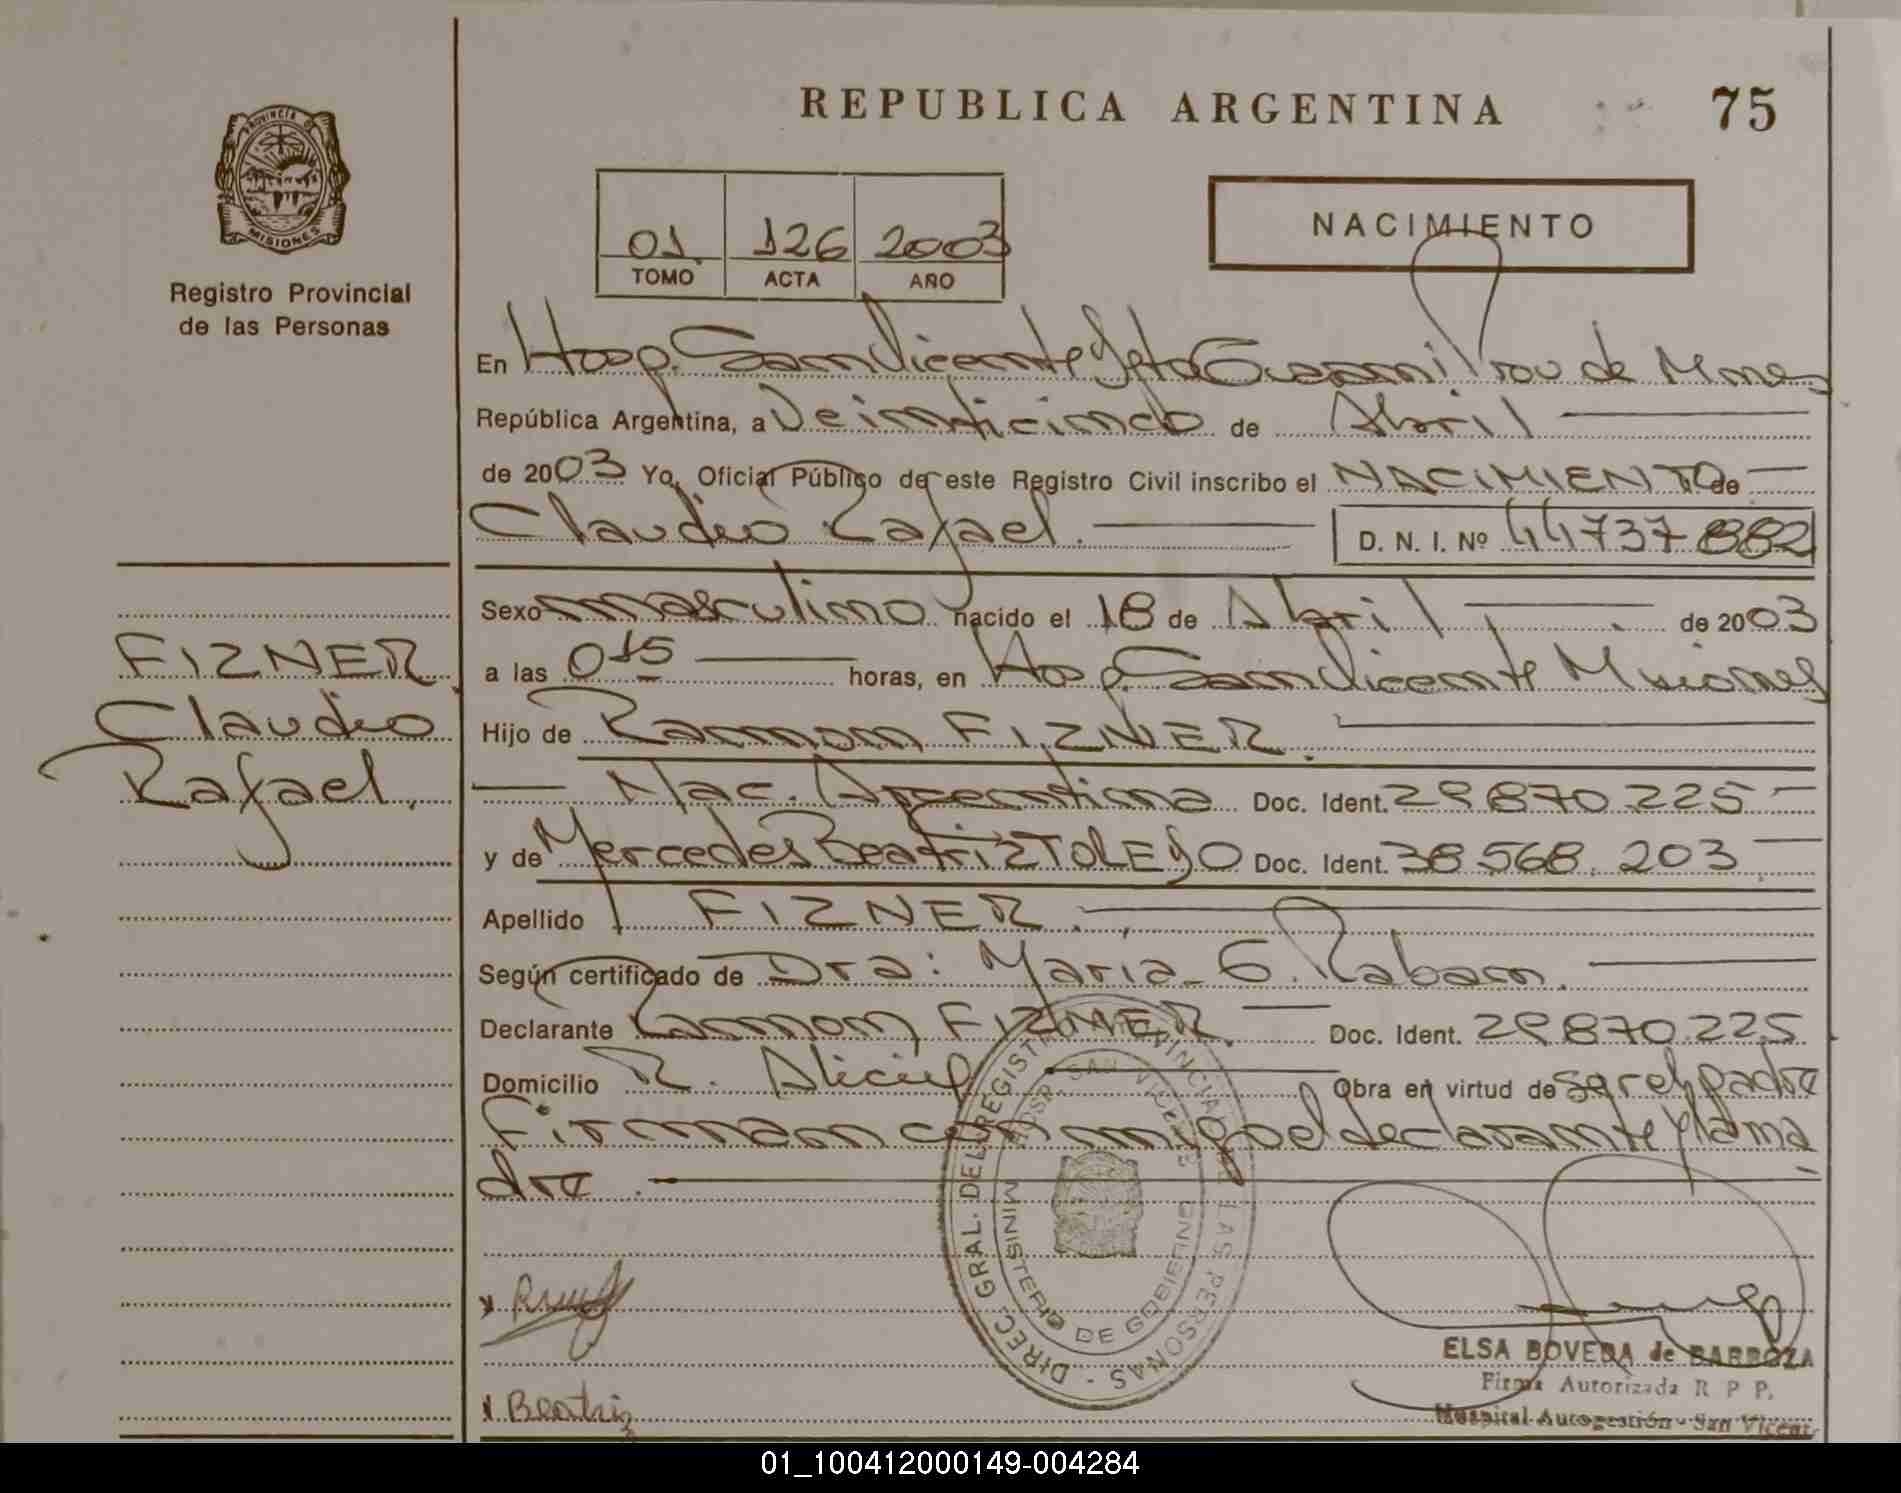 REPUBLICA ARGENTINA
75
PROVINCIA DE
MISIONES
Registro Provincial
de las Personas
01 126 2003
TOMO ACTA AÑO
NACIMIENTO
En Hosp. San Vicente Dpto Guarani Prov de Mnes
República Argentina, a Veinticinco de Abril
de 2003 Yo, Oficial Público de este Registro Civil inscribo el NACIMIENTO de
Claudio Rafael.
D. N. I. Nº 44737882
Sexo masculino nacido el 18 de Abril de 2003
a las 0 15 horas, en Hosp. San Vicente Misiones
Hijo de Ramon FIZNER.
Nac. Argentina Doc. Ident. 29870.225
y de Mercedes Beatriz TOLEDO Doc. Ident. 38568.203
Apellido FIZNER.
Según certificado de Dra: Maria G. Raban.
Declarante Ramon FIZNER. Doc. Ident. 29870.225
Domicilio R. Obra en virtud de ser el padre
Firman conmigo el declarante y la ma
dre.
FIZNER
Claudio
Rafael.
DIREC. GRAL. DEL REGISTRO PROVINCIAL DE LAS PERSONAS
HOSP. SAN VICENTE
MINISTERIO DE GOBIERNO
Beatriz
ELSA BOVEDA de BARBOZA
Firma Autorizada R P P.
Hospital Autogestión - San Vicente
01_100412000149-004284